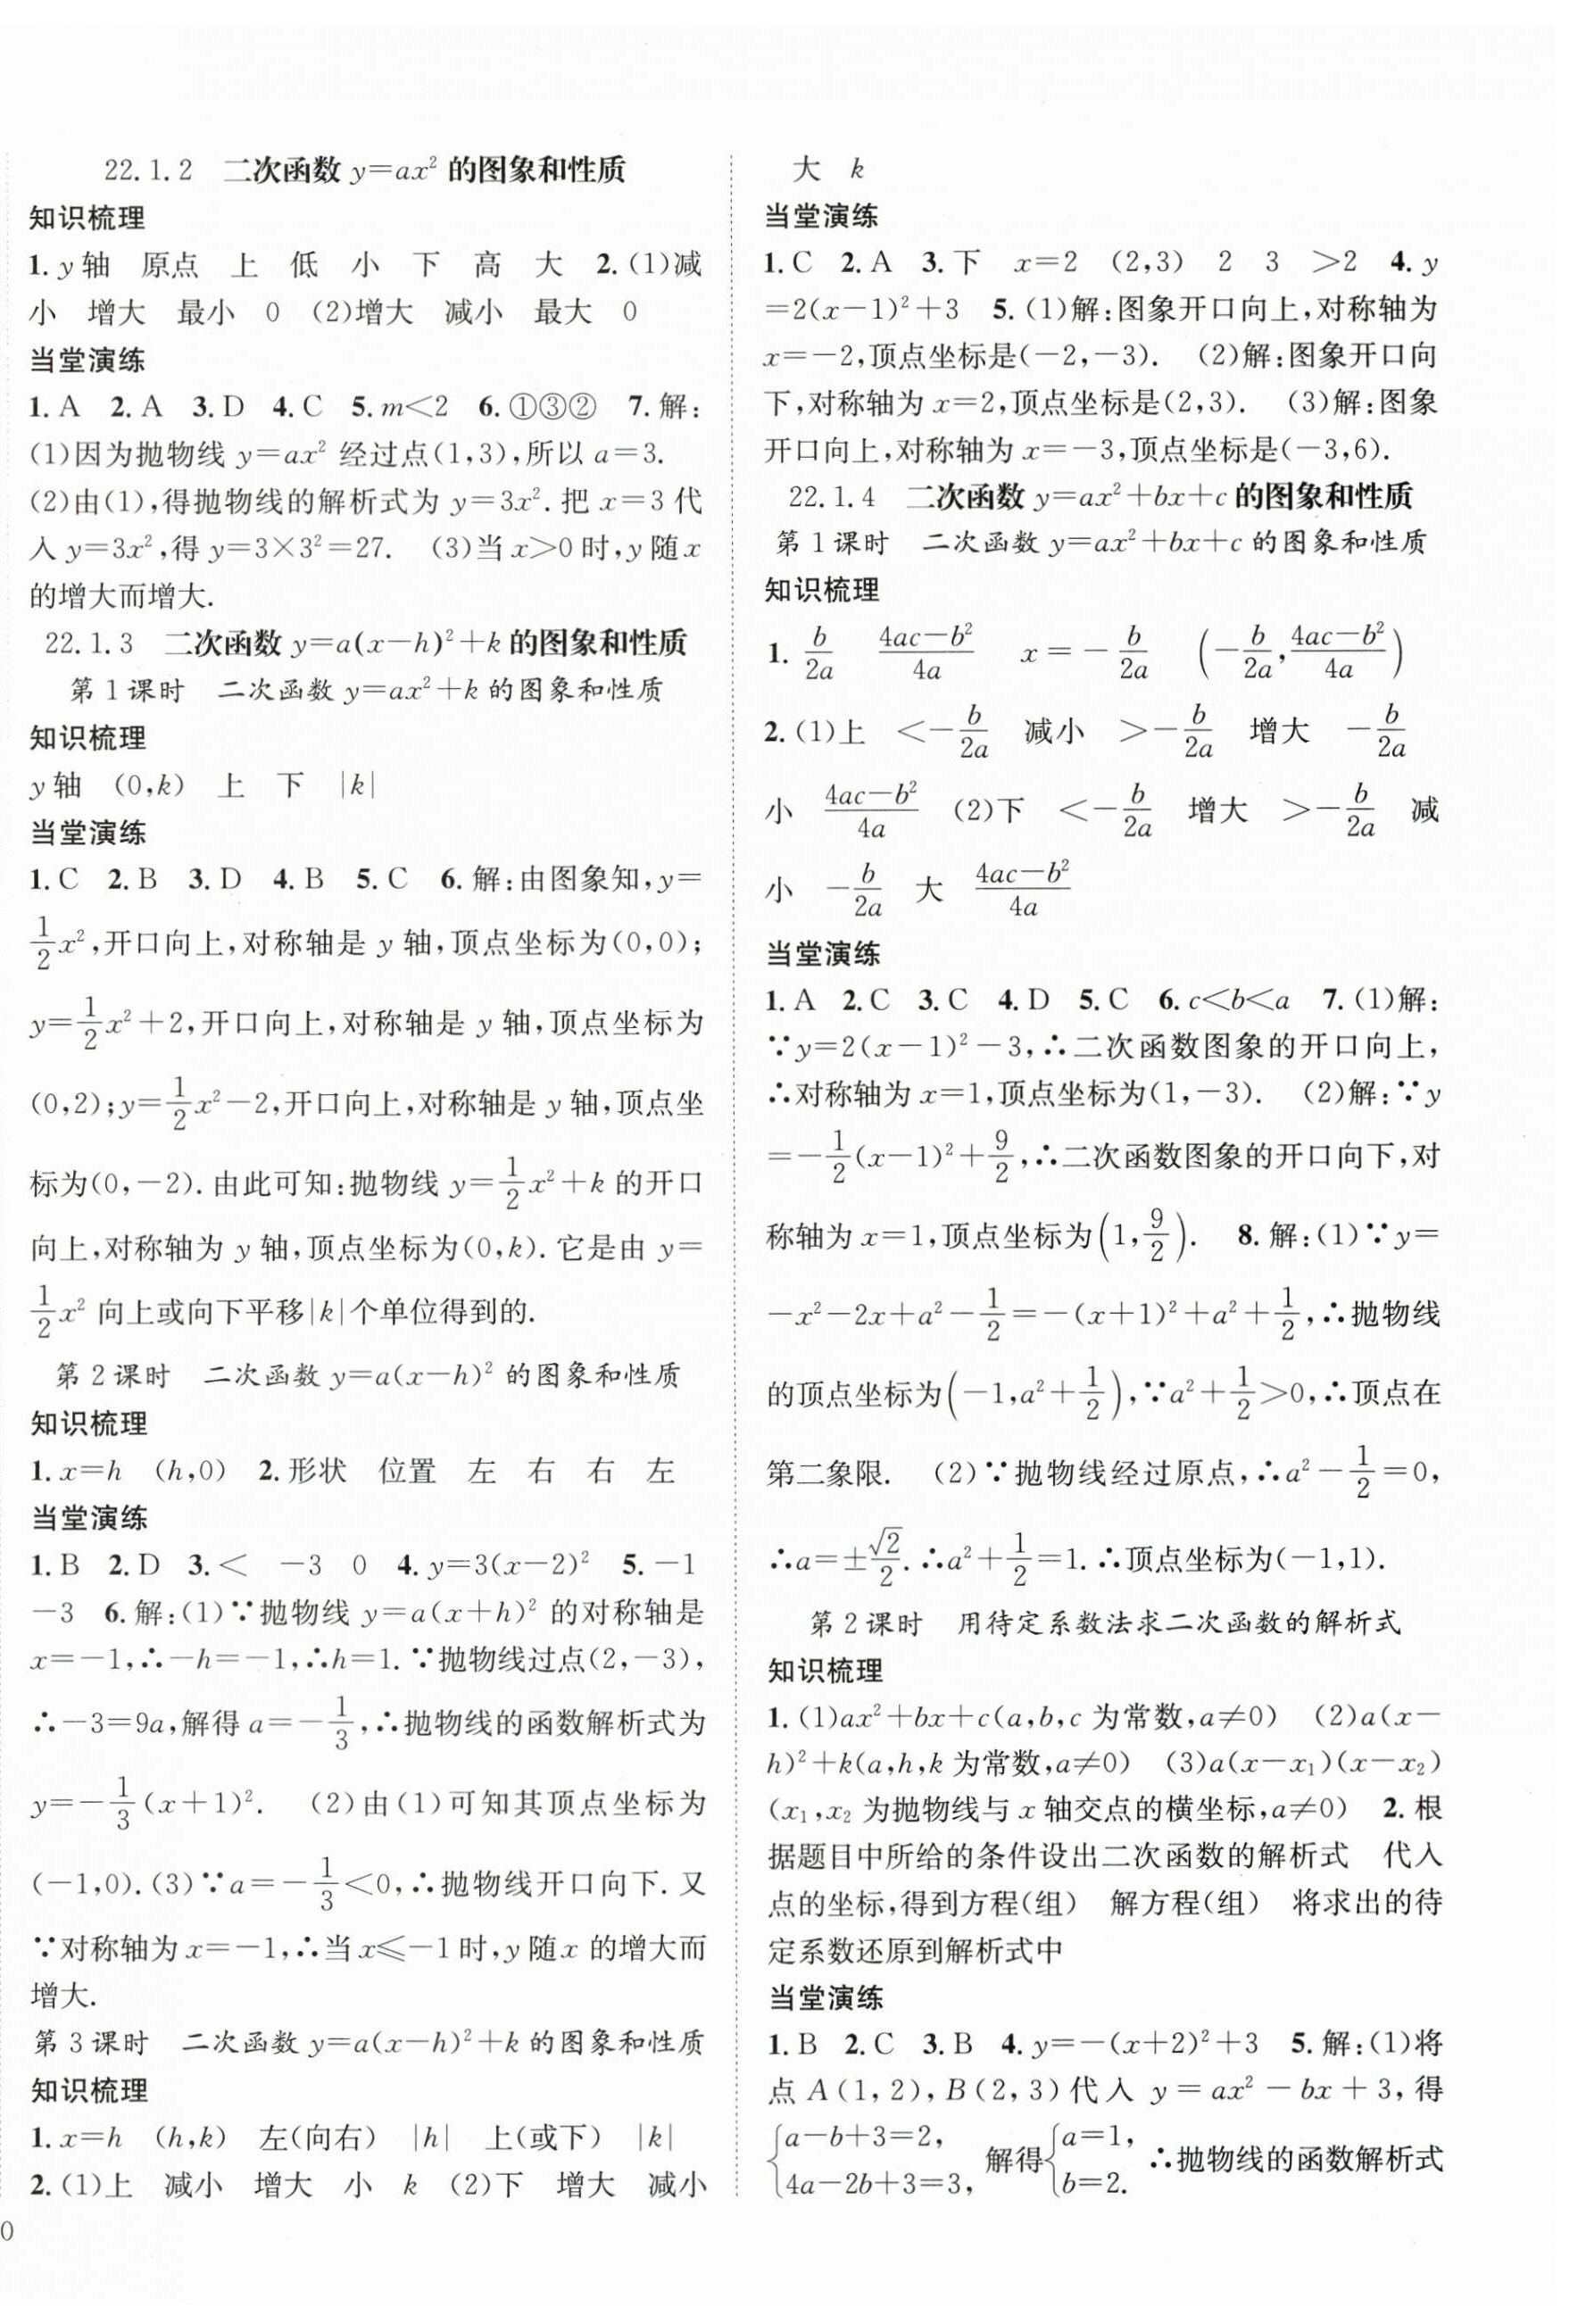 22.1.2 二次函数 y=ax² 的图象和性质
知识梳理
1. y 轴 原点 上 低 小 下 高 大 2. (1)减
小 增大 最小 0 (2)增大 减小 最大 0
当堂演练
1. A 2. A 3. D 4. C 5. m<2 6. ①③② 7. 解:
(1)因为抛物线 y=ax² 经过点(1,3),所以 a=3.
(2)由(1),得抛物线的解析式为 y=3x². 把 x=3 代
入 y=3x²,得 y=3×3²=27. (3)当 x>0 时,y 随 x
的增大而增大.
22.1.3 二次函数 y=a(x-h)²+k 的图象和性质
第 1 课时 二次函数 y=ax²+k 的图象和性质
知识梳理
y 轴 (0,k) 上 下 |k|
当堂演练
1. C 2. B 3. D 4. B 5. C 6. 解:由图象知,y=
1/2x²,开口向上,对称轴是 y 轴,顶点坐标为(0,0);
y=1/2x²+2,开口向上,对称轴是 y 轴,顶点坐标为
(0,2);y=1/2x²-2,开口向上,对称轴是 y 轴,顶点坐
标为(0,-2). 由此可知:抛物线 y=1/2x²+k 的开口
向上,对称轴为 y 轴,顶点坐标为(0,k). 它是由 y=
1/2x² 向上或向下平移|k|个单位得到的.
第 2 课时 二次函数 y=a(x-h)² 的图象和性质
知识梳理
1. x=h (h,0) 2. 形状 位置 左 右 右 左
当堂演练
1. B 2. D 3. < -3 0 4. y=3(x-2)² 5. -1
-3 6. 解:(1)∵抛物线 y=a(x+h)² 的对称轴是
x=-1,∴-h=-1,∴h=1. ∵抛物线过点(2,-3),
∴-3=9a,解得 a=-1/3,∴抛物线的函数解析式为
y=-1/3(x+1)². (2)由(1)可知其顶点坐标为
(-1,0). (3)∵a=-1/3<0,∴抛物线开口向下. 又
∵对称轴为 x=-1,∴当 x≤-1 时,y 随 x 的增大而
增大.
第 3 课时 二次函数 y=a(x-h)²+k 的图象和性质
知识梳理
1. x=h (h,k) 左(向右) |h| 上(或下) |k|
2. (1)上 减小 增大 小 k (2)下 增大 减小
0
大 k
当堂演练
1. C 2. A 3. 下 x=2 (2,3) 2 3 >2 4. y
=2(x-1)²+3 5. (1)解:图象开口向上,对称轴为
x=-2,顶点坐标是(-2,-3). (2)解:图象开口向
下,对称轴为 x=2,顶点坐标是(2,3). (3)解:图象
开口向上,对称轴为 x=-3,顶点坐标是(-3,6).
22.1.4 二次函数 y=ax²+bx+c 的图象和性质
第 1 课时 二次函数 y=ax²+bx+c 的图象和性质
知识梳理
1. b/2a (4ac-b²)/4a x=-b/2a (-b/2a,(4ac-b²)/4a)
2. (1)上 <-b/2a 减小 >-b/2a 增大 -b/2a
小 (4ac-b²)/4a (2)下 <-b/2a 增大 >-b/2a 减
小 -b/2a 大 (4ac-b²)/4a
当堂演练
1. A 2. C 3. C 4. D 5. C 6. c<b<a 7. (1)解:
∵y=2(x-1)²-3,∴二次函数图象的开口向上,
∴对称轴为 x=1,顶点坐标为(1,-3). (2)解:∵y
=-1/2(x-1)²+9/2,∴二次函数图象的开口向下,对
称轴为 x=1,顶点坐标为(1,9/2). 8. 解:(1)∵y=
-x²-2x+a²-1/2=-(x+1)²+a²+1/2,∴抛物线
的顶点坐标为(-1,a²+1/2),∵a²+1/2>0,∴顶点在
第二象限. (2)∵抛物线经过原点,∴a²-1/2=0,
∴a=±√2/2. ∴a²+1/2=1. ∴顶点坐标为(-1,1).
第 2 课时 用待定系数法求二次函数的解析式
知识梳理
1. (1)ax²+bx+c(a,b,c 为常数,a≠0) (2)a(x-
h)²+k(a,h,k 为常数,a≠0) (3)a(x-x₁)(x-x₂)
(x₁,x₂ 为抛物线与 x 轴交点的横坐标,a≠0) 2. 根
据题目中所给的条件设出二次函数的解析式 代入
点的坐标,得到方程(组) 解方程(组) 将求出的待
定系数还原到解析式中
当堂演练
1. B 2. C 3. B 4. y=-(x+2)²+3 5. 解:(1)将
点 A(1,2),B(2,3)代入 y=ax²-bx+3,得
{a-b+3=2, 4a-2b+3=3, 解得{a=1, b=2. ∴抛物线的函数解析式